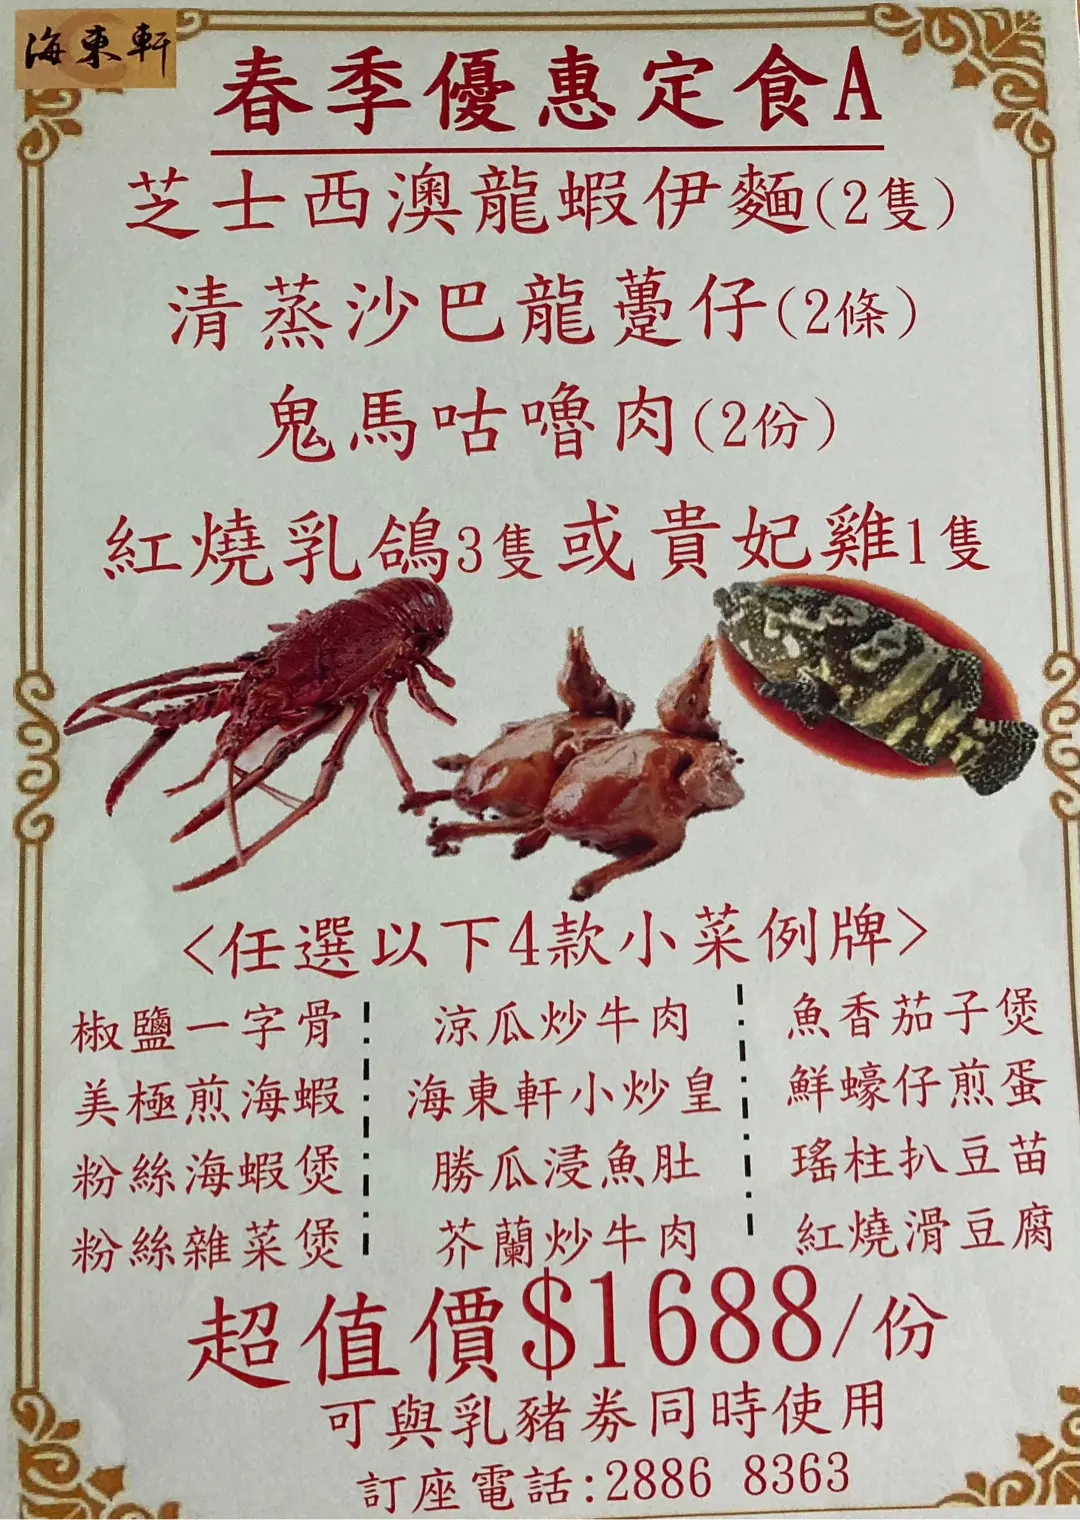 海東軒
春季優惠定食A
芝士西澳龍蝦伊麵(2隻)
清蒸沙巴龍躉仔(2條)
鬼馬咕嚕肉(2份)
紅燒乳鴿3隻或貴妃雞1隻
<任選以下4款小菜例牌>
椒鹽一字骨
美極煎海蝦
粉絲海蝦煲
粉絲雜菜煲
涼瓜炒牛肉
海東軒小炒皇
勝瓜浸魚肚
芥蘭炒牛肉
魚香茄子煲
鮮蠔仔煎蛋
瑤柱扒豆苗
紅燒滑豆腐
超值價$1688/份
可與乳豬券同時使用
訂座電話:2886 8363